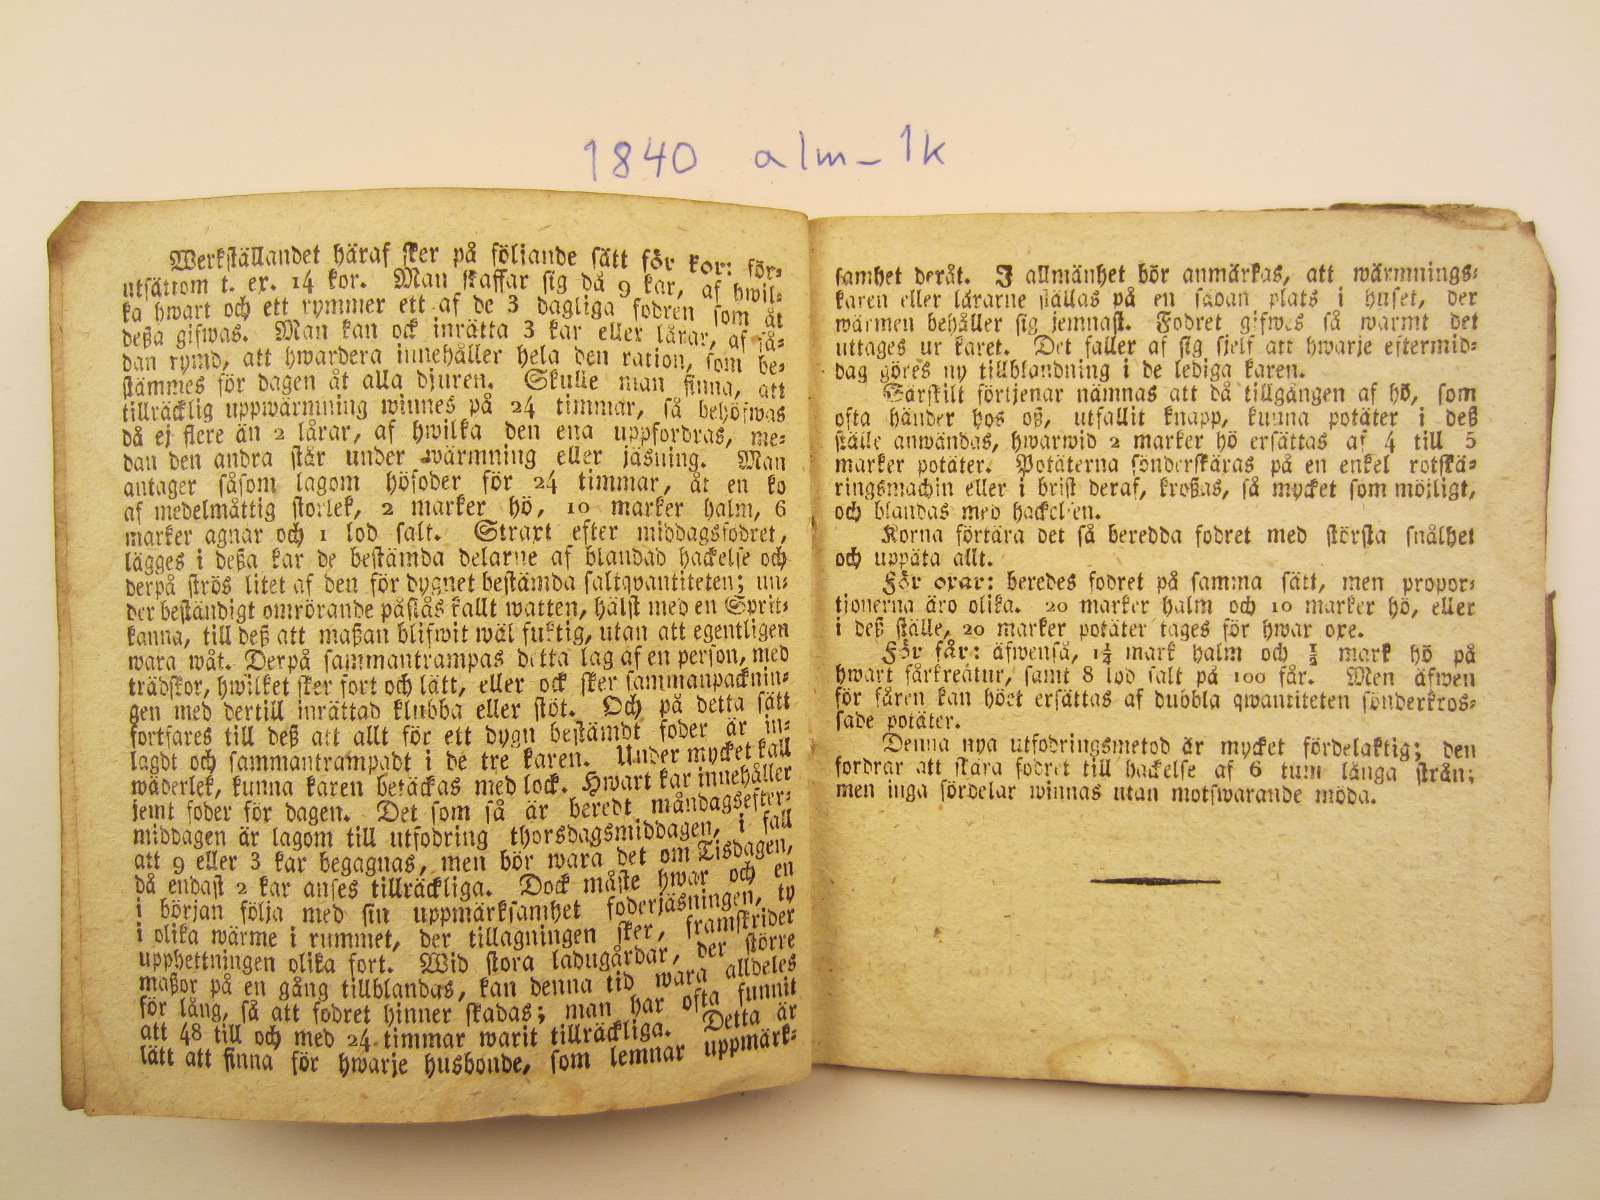 1840 alm_1k
Werkställandet häraf sker på följande sätt för kor: för-
utsättom t. ex. 14 kor. Man skaffar sig då 9 kar, af hwil-
ka hwart och ett rymmer ett af de 3 dagliga fodren som åt
deßa gifwas. Man kan ock inrätta 3 kar eller lårar, af så-
dan rymd, att hwardera innehåller hela den ration, som be-
stämmes för dagen åt alla djuren. Skulle man finna, att
tillräcklig uppwärmning winnes på 24 timmar, så behöfwas
då ej flere än 2 lårar, af hwilka den ena uppfordras, me-
dan den andra står under wärmning eller jäsning. Man
antager såsom lagom höfoder för 24 timmar, åt en ko
af medelmåttig storlek, 2 marker hö, 10 marker halm, 6
marker agnar och 1 lod salt. Straxt efter middagsfodret,
lägges i deßa kar de bestämda delarne af blandad hackelse och
derpå strös litet af den för dygnet bestämda saltqvantiteten; un-
der beständigt omrörande påslås kallt watten, hälst med en Sprit-
kanna, till deß att maßan blifwit wäl fuktig, utan att egentligen
wara wåt. Derpå sammantrampas detta lag af en person, med
trädskor, hwilket sker fort och lätt, eller ock sker sammanpacknin-
gen med dertill inrättad klubba eller stöt. Och på detta sätt
fortfares till deß att allt för ett dygn bestämdt foder är in-
lagdt och sammantrampadt i de tre karen. Under mycket kall
wäderlek, kunna karen betäckas med lock. Hwart kar innehåller
jemt foder för dagen. Det som så är beredt måndagsefter-
middagen är lagom till utfodring thorsdagsmiddagen, i fall
att 9 eller 3 kar begagnas, men bör wara det om Tisdagen,
då endast 2 kar anses tillräckliga. Dock måste hwar och en
i början följa med sin uppmärksamhet foderjäsningen, ty
i olika wärme i rummet, der tillagningen sker, framskrider
upphettningen olika fort. Wid stora ladugårdar, der större
maßor på en gång tillblandas, kan denna tid wara alldeles
för lång, så att fodret hinner skadas; man har ofta funnit
att 48 till och med 24 timmar warit tillräckliga. Detta är
lätt att finna för hwarje husbonde, som lemnar uppmärk-
samhet deråt. I allmänhet bör anmärkas, att wärmnings-
karen eller lårarne ställas på en sådan plats i huset, der
wärmen behåller sig jemnast. Fodret gifwes så warmt det
uttages ur karet. Det faller af sig sjelf att hwarje eftermid-
dag göres ny tillblandning i de lediga karen.
Särskilt förtjenar nämnas att då tillgången af hö, som
ofta händer hos oß, utfallit knapp, kunna potäter i deß
ställe anwändas, hwarwid 2 marker hö ersättas af 4 till 5
marker potäter. Potäterna sönderskäras på en enkel rotskä-
ringsmachin eller i brist deraf, kroßas, så mycket som möjligt,
och blandas med hackelsen.
Korna förtära det så beredda fodret med största snålhet
och uppäta allt.
För oxar: beredes fodret på samma sätt, men propor-
tionerna äro olika. 20 marker halm och 10 marker hö, eller
i deß ställe, 20 marker potäter tages för hwar oxe.
För får: äfwenså, 1½ mark halm och ½ mark hö på
hwart fårkreatur, samt 8 lod salt på 100 får. Men äfwen
för fåren kan höet ersättas af dubbla qwantiteten sönderkros-
sade potäter.
Denna nya utfodringsmetod är mycket fördelaktig; den
fordrar att skära fodret till hackelse af 6 tum långa strån;
men inga fördelar winnas utan motswarande möda.